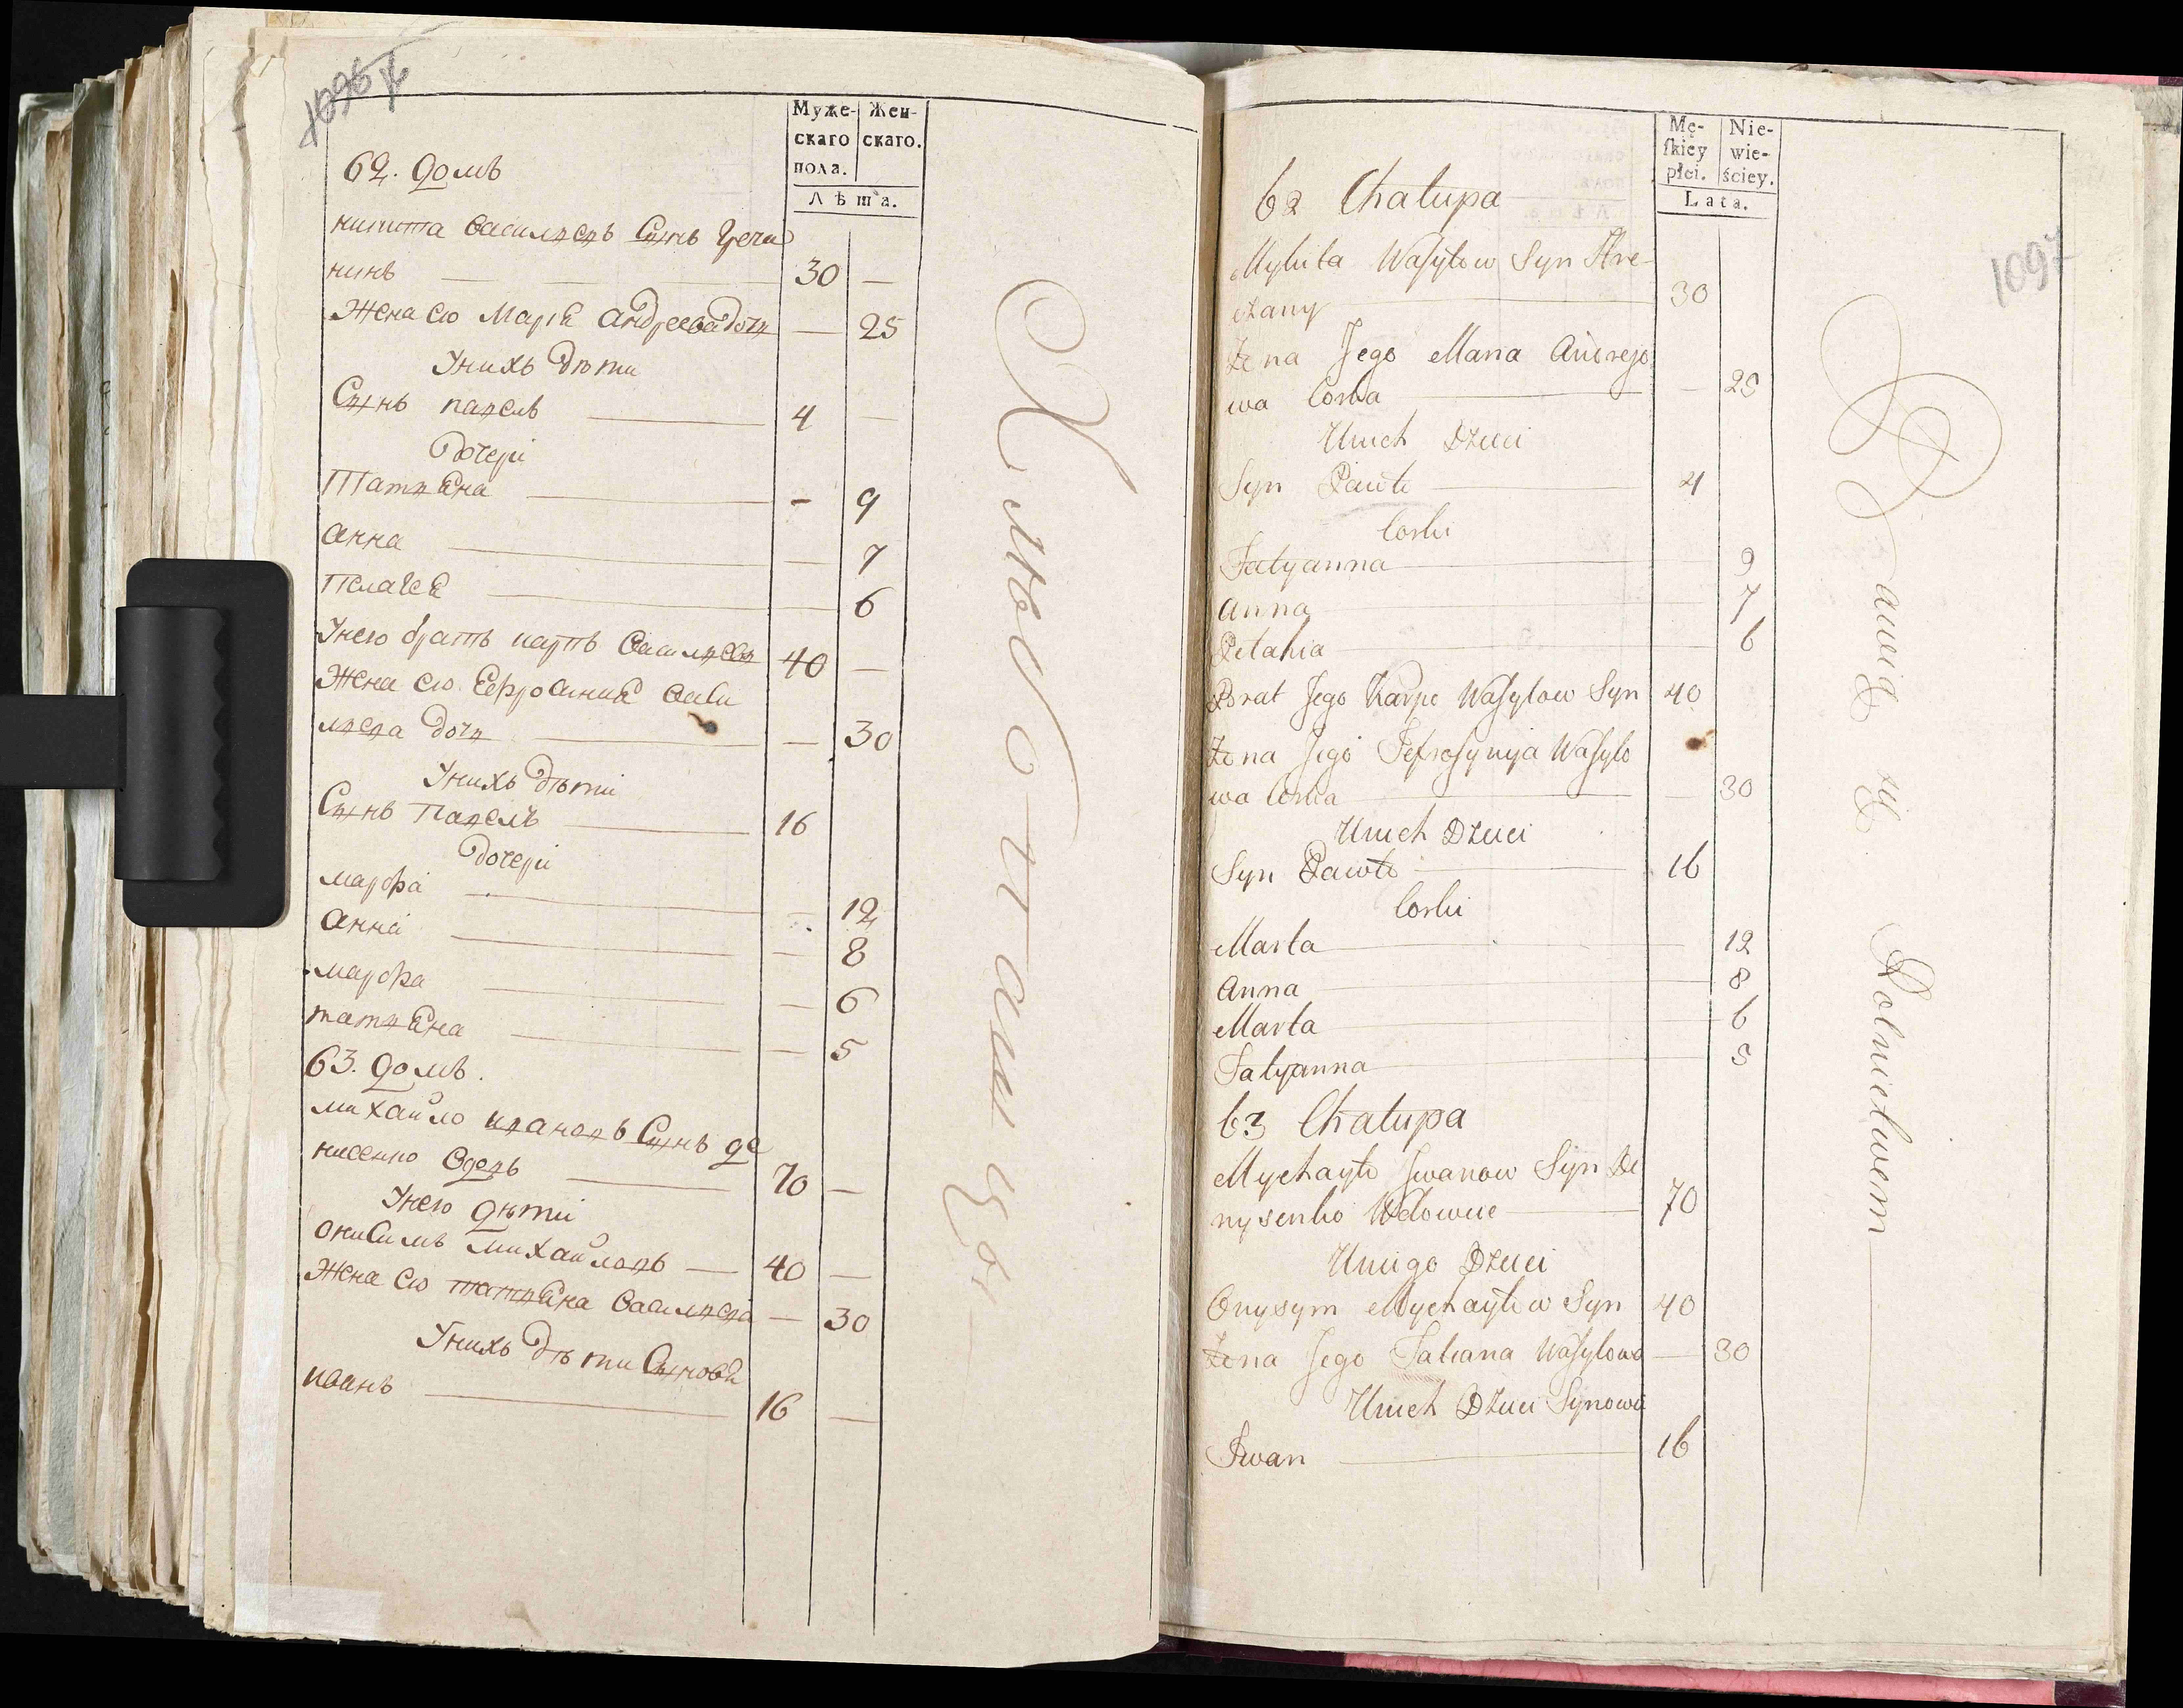 Муже- Жен-
скаго скаго.
пола.
Лѣта.
62. домъ
никита василиевъ Сынъ Гречи
нинъ — 30 —
Жена его Марія андреева дочь — 25
У нихъ дѣти
Сынъ павелъ — 4 —
дочери
Татияна — 9
анна — 7
Пелагея — 6
У него братъ карпъ василиевъ 40 —
Жена его Ефросиния васи
лиева дочь — 30
У нихъ дѣти
Сынъ Павелъ — 16
дочери
марфа — 12
анна — 8
марфа — 6
татияна — 5
63. домъ.
михайло ивановъ Сынъ де
нисенко вдовъ — 70 —
У него дѣти
онисимъ михайловъ — 40 —
Жена его татияна василиева — 30
У нихъ дѣти Сынови
иванъ — 16 —
Хлѣбопашцы
Mę- Nie-
skiey wie-
płci. ściey.
Lata.
1097
62 Chałupa
Mykita Wasylow Syn Hre
czany — 30
Żona Jego Maria Andrejo
wa Corka — 25
U nich Dzieci
Syn Pawło — 4
Corki
Tatyanna — 9
Anna — 7
Pelahia — 6
Brat Jego Karpo Wasylow Syn 40
Żona Jego Jefrosynija Wasylo
wa Corka — 30
U nich Dzieci
Syn Pawło — 16
Corki
Marta — 12
Anna — 8
Marta — 6
Tatyanna — 5
63 Chałupa
Mychayło Iwanow Syn De
nysenko Wdowiec — 70
U niego Dzieci
Onysym Mychayłow Syn 40
Żona Jego Tatiana Wasylowa — 30
U nich Dzieci Synowie
Iwan — 16
Bawią się Rolnictwem